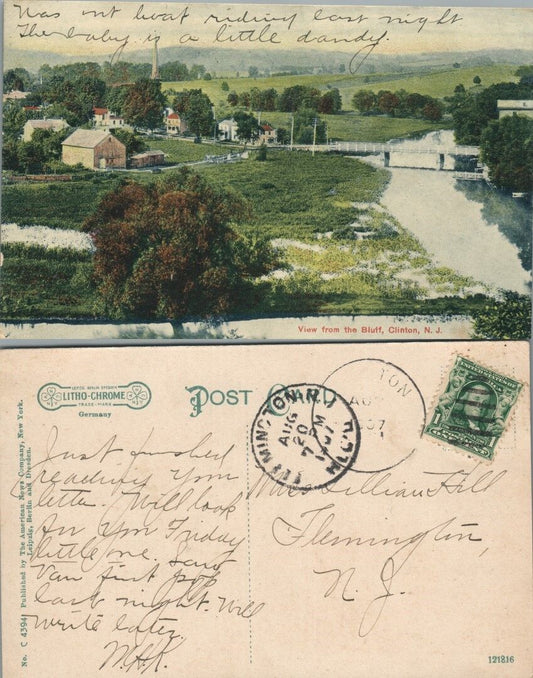 Was out boat riding last night
The baby is a little dandy.
View from the Bluff, Clinton, N. J.
LEIPZIG BERLIN DRESDEN
LITHO-CHROME
TRADE-MARK
Germany
POST CARD
Just finished
reading your
letter. Will look
for you Friday
little one. Saw
Van first pop
last night. Will
write later.
M.H.K.
FLEMINGTON, N.J.
AUG
20
7 PM
TON
AU
07
Miss Lillian Hill
Flemington,
N. J.
No. C 4394 Published by The American News Company, New York.
Leipzig, Berlin and Dresden.
121816